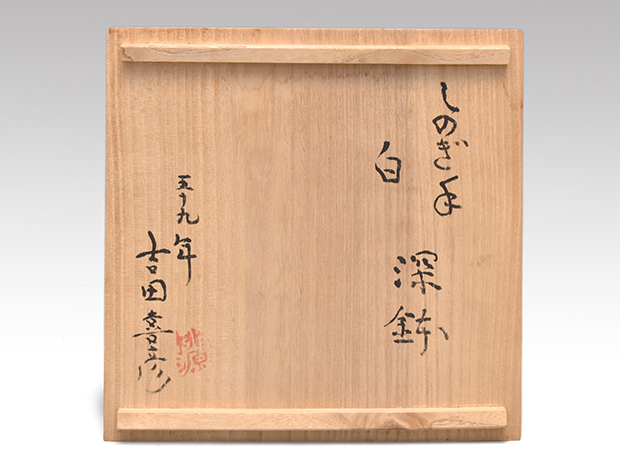 しのぎ手
白
深鉢
五十九年
吉田喜彦
桃源